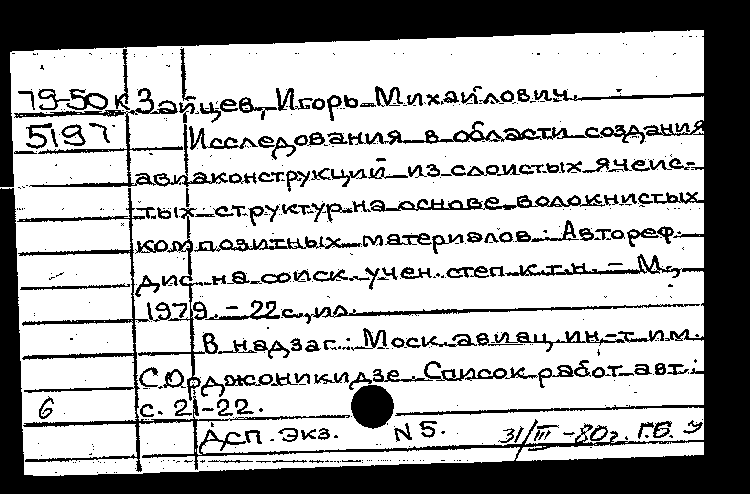 79-50к Зайцев, Игорь Михайлович.
5197 Исследования в области создания
авиаконструкций из слоистых ячеис-
тых структур на основе волокнистых
композитных материалов: Автореф.
дис. на соиск. учен. степ. к.т.н. - М.,
1979. - 22с., ил.
В надзаг.: Моск. авиац. ин-т им.
С.Орджоникидзе. Список работ авт.:
6 с. 21-22.
ДСП. Экз. N 5. 31/III-80г. Г.Б. У